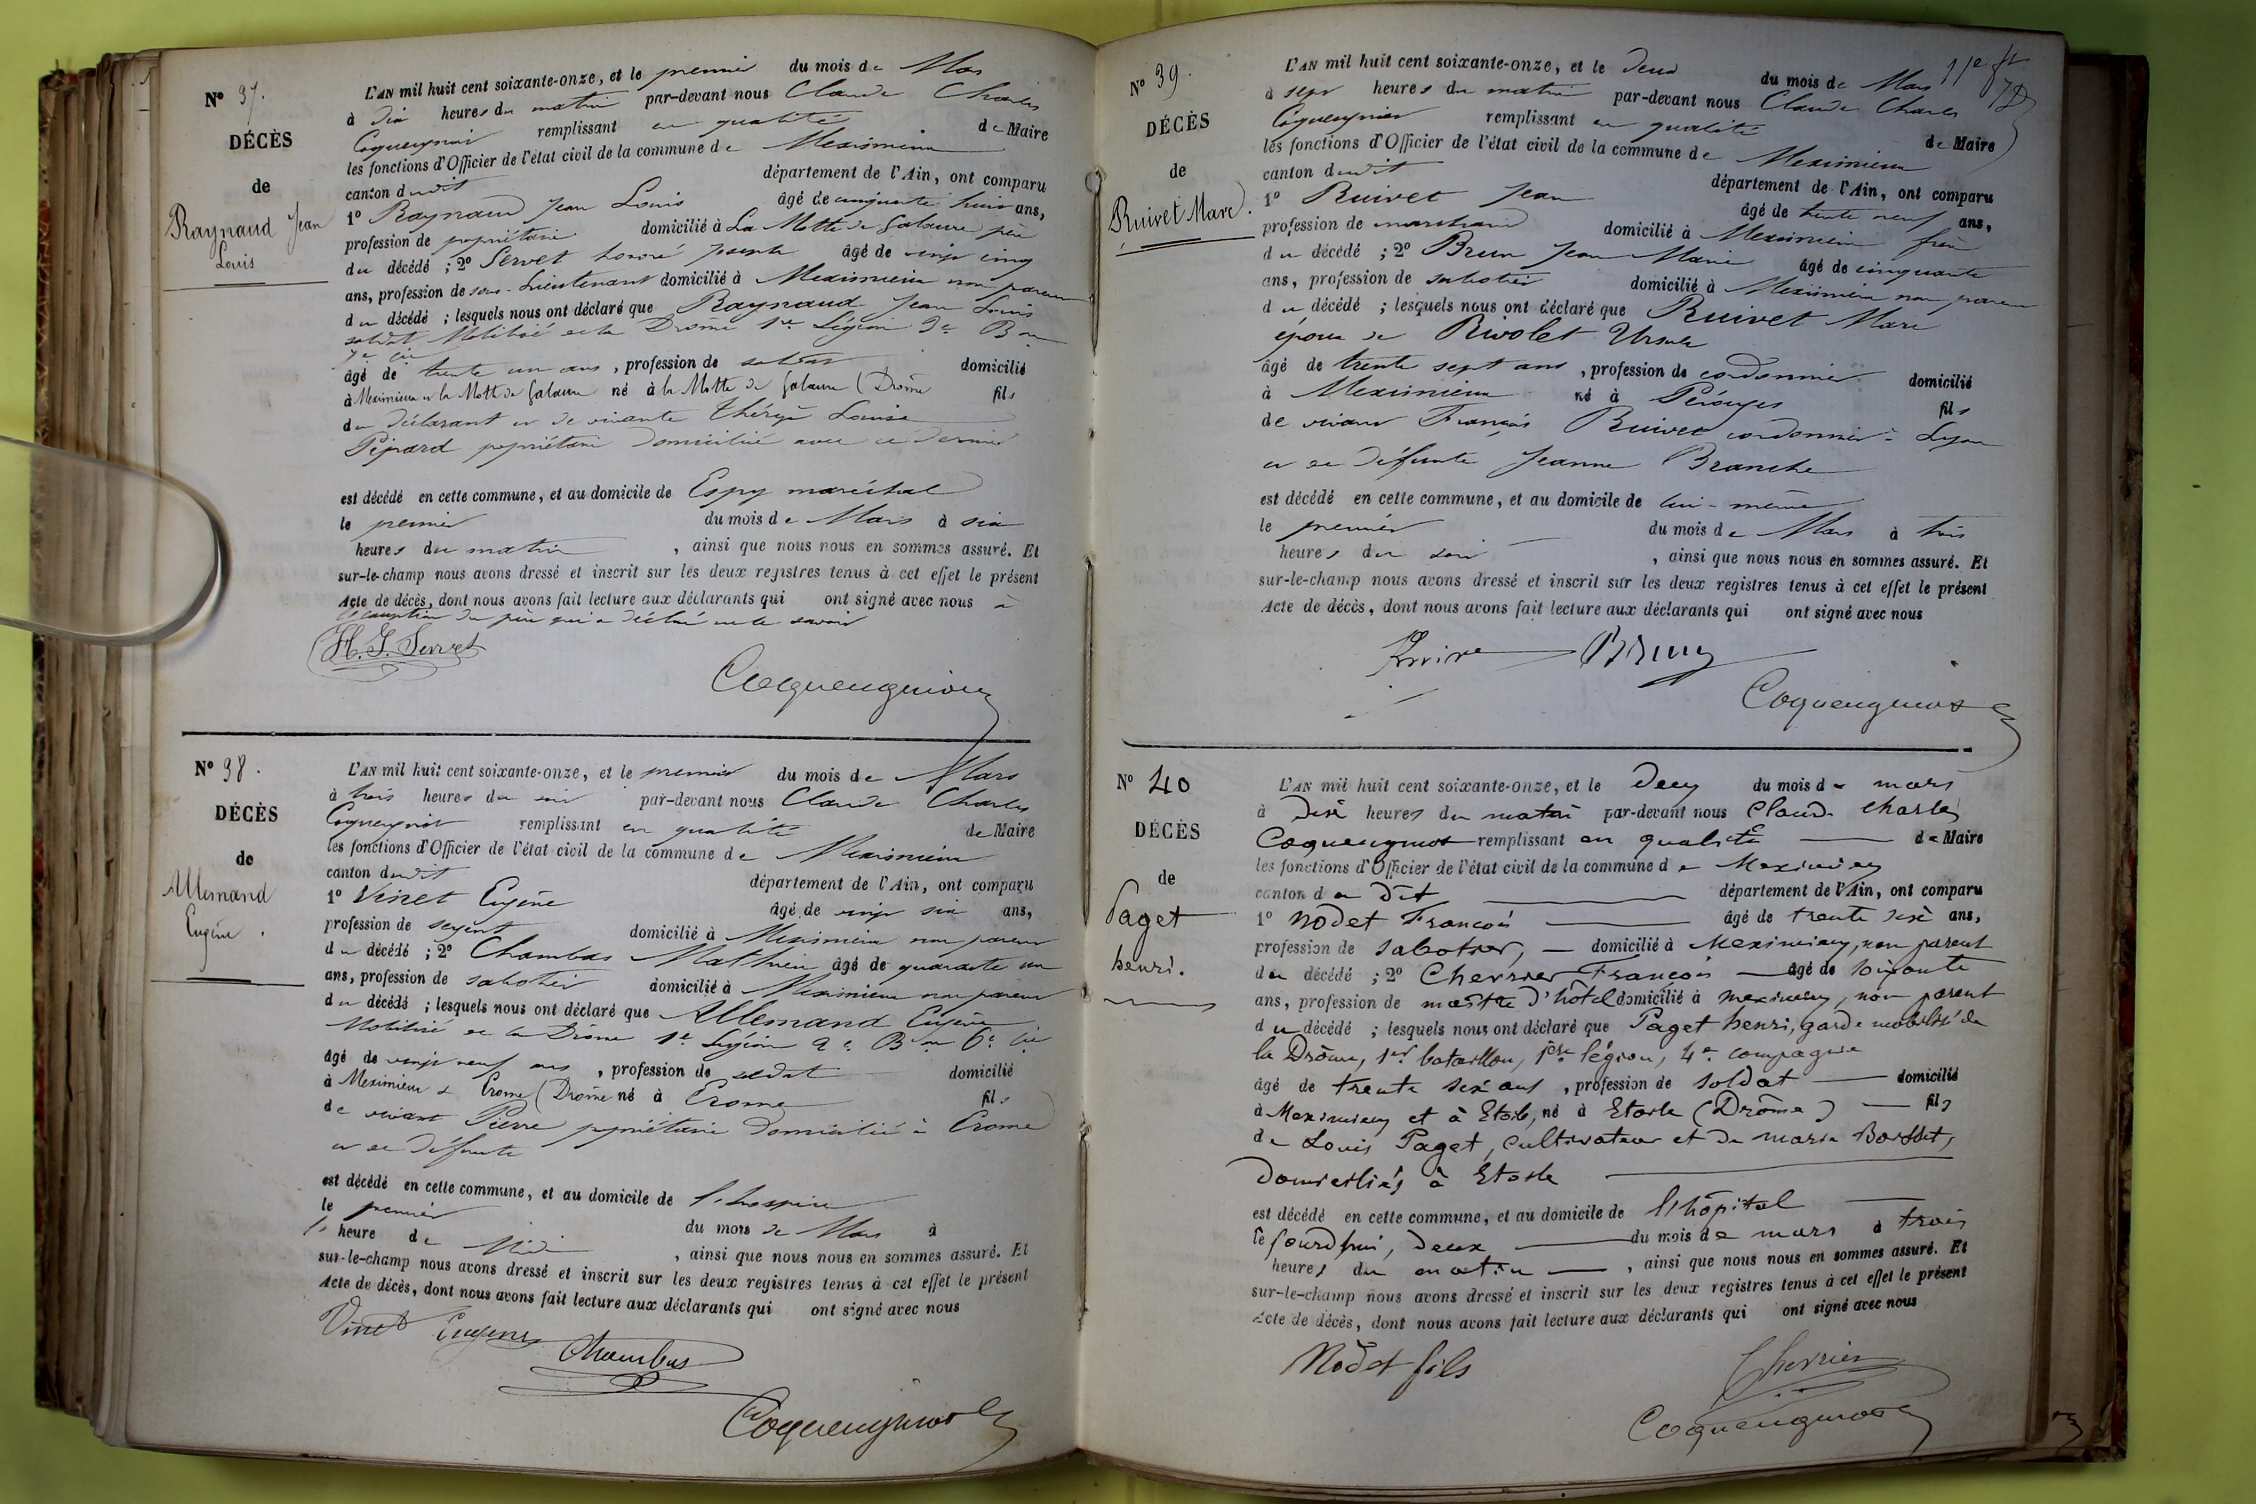 N° 37.
DÉCÈS
de
Raynaud Jean
Louis
L'AN mil huit cent soixante-onze, et le premier du mois de Mars
à dix heures du matin par-devant nous Claude Charles
Coquengniot remplissant en qualité de Maire
les fonctions d'Officier de l'état civil de la commune de Meximieux
canton dudit département de l'Ain, ont comparu
1° Raynaud Jean Louis âgé de cinquante huit ans,
profession de propriétaire domicilié à La Motte de Galaure père
du décédé ; 2° Servet honoré joseph âgé de vingt cinq
ans, profession de sous-Lieutenant domicilié à Meximieux non parent
du décédé ; lesquels nous ont déclaré que Raynaud Jean Louis
soldat Mobilisé de la Drôme 1re Légion 2e Bon
7e cie
âgé de trente un ans, profession de soldat domicilié
à Meximieux et la Motte de Galaure né à la Motte de Galaure (Drôme fils
du déclarant et de vivante thérèse Louise
Pipard propriétaire domiciliée avec ce dernier
est décédé en cette commune, et au domicile de Espy maréchal
le premier du mois de Mars à six
heures du matin, ainsi que nous nous en sommes assuré. Et
sur-le-champ nous avons dressé et inscrit sur les deux registres tenus à cet effet le présent
Acte de décès, dont nous avons fait lecture aux déclarants qui ont signé avec nous à
l'exception du père qui a déclaré ne le savoir
H. J. Servet
Coquengniot
N° 38.
DÉCÈS
de
Allemand
Eugène.
L'AN mil huit cent soixante-onze, et le premier du mois de Mars
à trois heures du soir par-devant nous Claude Charles
Coquengniot remplissant en qualité de Maire
les fonctions d'Officier de l'état civil de la commune de Meximieux
canton dudit département de l'Ain, ont comparu
1° Vinet Eugène âgé de vingt six ans,
profession de sergent domicilié à Meximieux non parent
du décédé ; 2° Chambas Mathieu âgé de quarante un
ans, profession de sabotier domicilié à Meximieux non parent
du décédé ; lesquels nous ont déclaré que Allemand Eugène
Mobilisé de la Drôme 1e Légion 2e Bon 6e Cie
âgé de vingt neuf ans, profession de soldat domicilié
à Meximieux et Erome (Drôme né à Erome fils
de vivant Pierre propriétaire domicilié à Erome
et de défunte
est décédé en cette commune, et au domicile de l'hospice
le premier du mois de Mars à
l' heure de Midi, ainsi que nous nous en sommes assuré. Et
sur-le-champ nous avons dressé et inscrit sur les deux registres tenus à cet effet le présent
Acte de décès, dont nous avons fait lecture aux déclarants qui ont signé avec nous
Vinet Eugène
Chambas
Coquengniot
N° 39.
DÉCÈS
de
Ruivet Marc.
L'AN mil huit cent soixante-onze, et le deux du mois de Mars
à sept heures du matin par-devant nous Claude Charles
Coquengniot remplissant en qualité de Maire
les fonctions d'Officier de l'état civil de la commune de Meximieux
canton dudit département de l'Ain, ont comparu
1° Ruivet Jean âgé de trente neuf ans,
profession de marchand domicilié à Meximieux frère
du décédé ; 2° Brun Jean Marie âgé de cinquante
ans, profession de sabotier domicilié à Meximieux non parent
du décédé ; lesquels nous ont déclaré que Ruivet Marc
époux de Rivolet Ursule
âgé de trente sept ans, profession de cordonnier domicilié
à Meximieux né à Pérouges fils
de vivant François Ruivet cordonnier à Lyon
et de défunte Jeanne Branche
est décédé en cette commune, et au domicile de lui-même
le premier du mois de Mars à trois
heures du soir, ainsi que nous nous en sommes assuré. Et
sur-le-champ nous avons dressé et inscrit sur les deux registres tenus à cet effet le présent
Acte de décès, dont nous avons fait lecture aux déclarants qui ont signé avec nous
Brun
Coquengniot
N° 40
DÉCÈS
de
Paget
henri.
L'AN mil huit cent soixante-onze, et le deux du mois de mars
à dix heures du matin par-devant nous Claude Charles
Coquengniot remplissant en qualité de Maire
les fonctions d'Officier de l'état civil de la commune de Meximieux
canton du dit département de l'Ain, ont comparu
1° Nodet François âgé de trente six ans,
profession de sabotier, domicilié à Meximieux, non parent
du décédé ; 2° Cherrier François âgé de soixante
ans, profession de maître d'hôtel domicilié à meximieux, non parent
du décédé ; lesquels nous ont déclaré que Paget henri, garde mobilisé de
la Drôme, 1er bataillon, 1ère légion, 4e compagnie
âgé de trente six ans, profession de soldat domicilié
à Meximieux et à Etoile, né à Etoile (Drôme) fils
de Louis Paget, cultivateur et de marie Bosset,
domiciliés à Etoile
est décédé en cette commune, et au domicile de l'hôpital
le jourd'hui, deux du mois de mars à trois
heures du matin, ainsi que nous nous en sommes assuré. Et
sur-le-champ nous avons dressé et inscrit sur les deux registres tenus à cet effet le présent
Acte de décès, dont nous avons fait lecture aux déclarants qui ont signé avec nous
Nodet fils
Cherrier
Coquengniot